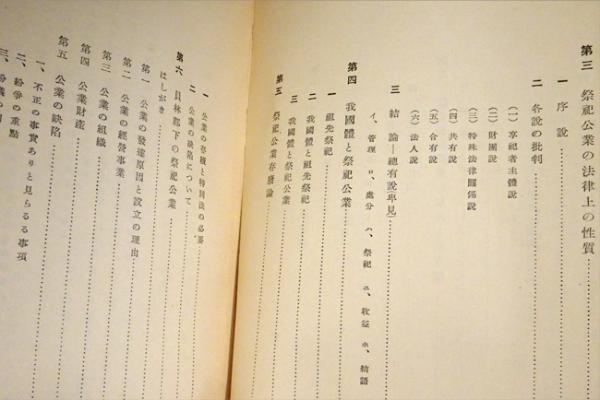 第三 祭祀公業の法律上の性質
一 序說
二 各說の批判
(一) 享祀者主體說
(二) 財團說
(三) 特殊法律關係說
(四) 共有說
(五) 合有說
(六) 法人說
三 結論―總有說卑見
イ、管理 ロ、處分 ハ、祭祀 ニ、收益 ホ、結語
第四 我國體と祭祀公業
一 祖先祭祀
二 我國體と祖先祭祀
三 我國體と祭祀公業
第五 祭祀公業存廢論
一 公業の存續と特別法の必要
二 公業の缺陷について
第六 員林郡下の祭祀公業
はしがき
第一 公業の發達原因と設立の理由
第二 公業の經營事業
第三 公業の組織
第四 公業財產
第五 公業の缺陷
一、不正の事實ありと見らるる事項
二、紛爭の重點